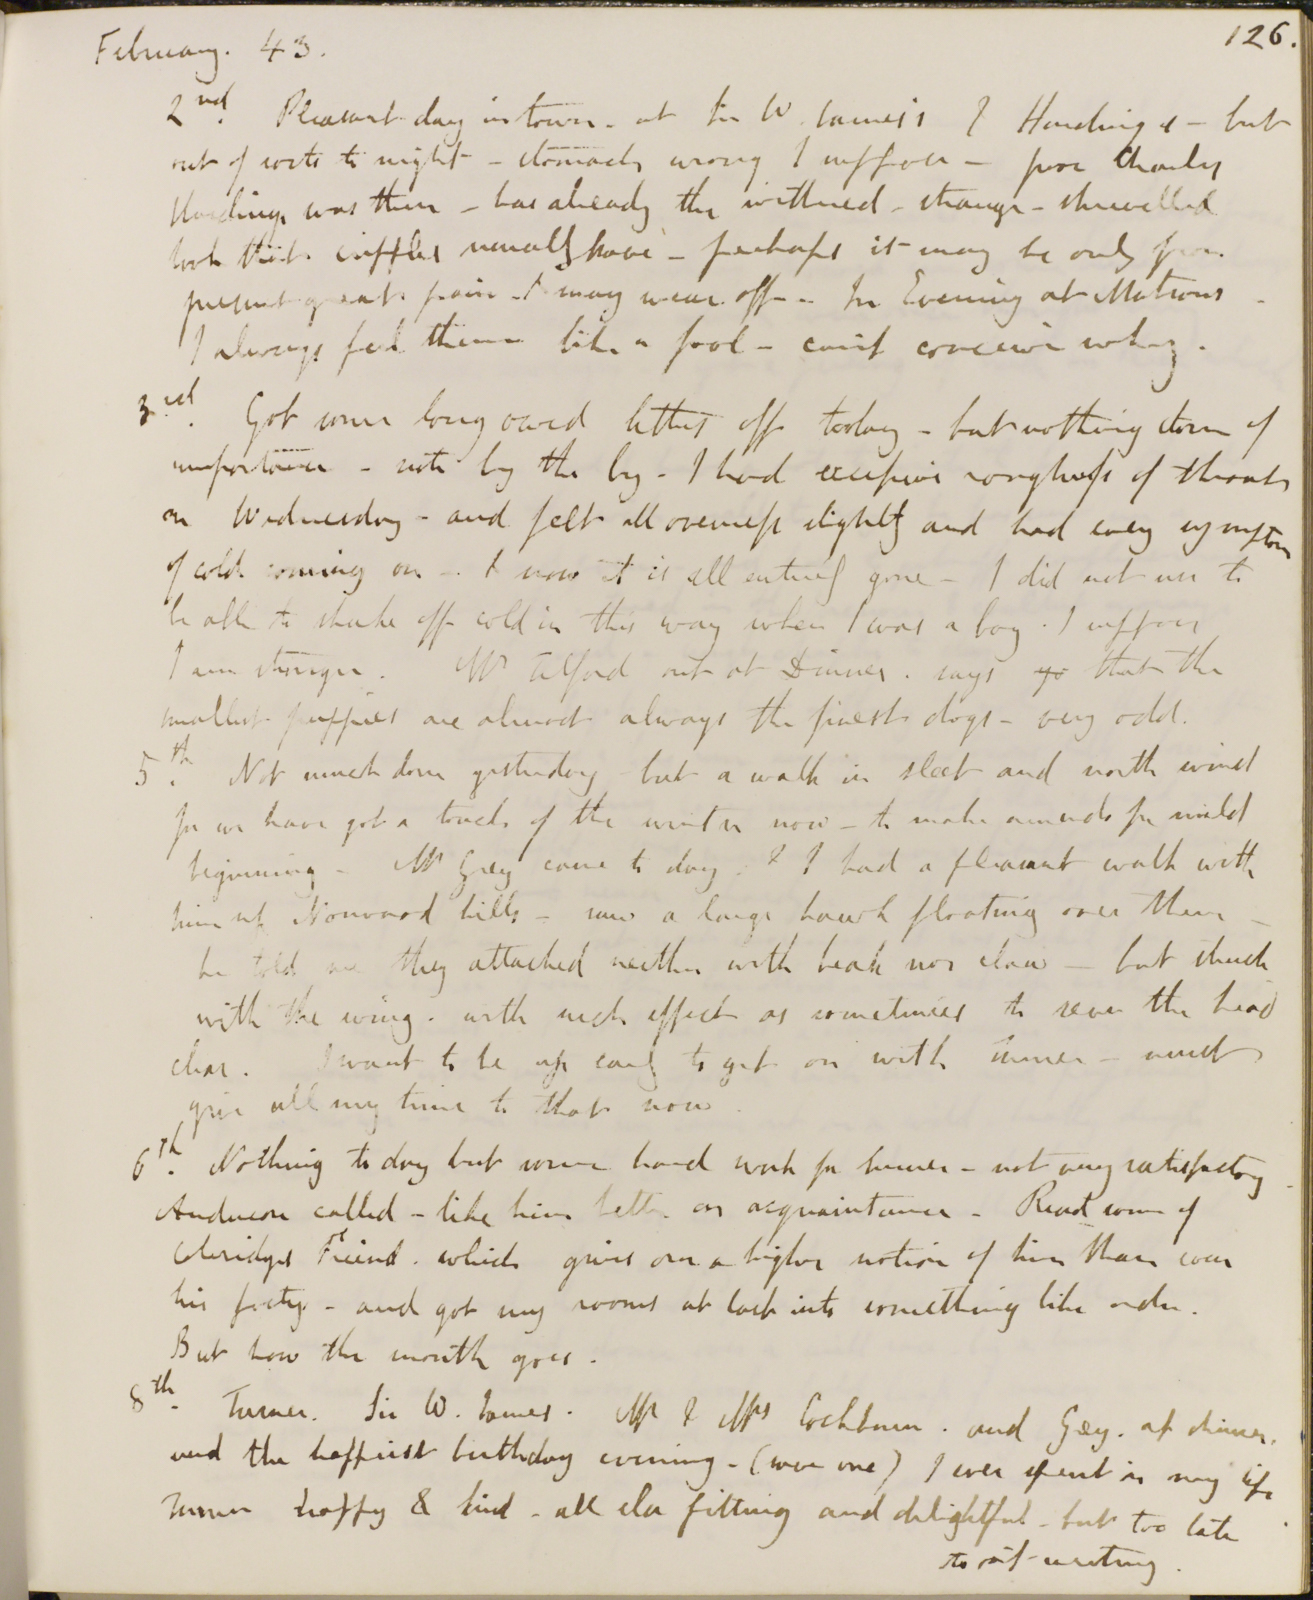 February. 43.
126.
2nd. Pleasant day in town - at Sir W. James's & Hardinge's - but
out of sorts to night - stomach wrong I suppose - poor Charles
Hardinge was there - has already the withered - strange - shrivelled
look that cripples usually have - perhaps it may be only from
present great pain - & may wear off - In Evening at Matsons -
I always feel there like a fool - can't conceive why.
3rd. Got some long owed letters off today - but nothing done of
importance - note by the by - I had excessive roughness of throat
on Wednesday - and felt all overness slightly and had every symptom
of cold coming on - & now it is all entirely gone - I did not use to
be able to shake off cold in this way when I was a boy. I suppose
I am stronger. Mr Telford out at Dinner. says that the
smallest puppies are almost always the finest dogs - very odd.
5th. Not much done yesterday but a walk in sleet and north wind
for we have got a touch of the winter now - to make amends for mild
beginning - Mr Grey came to day. & I had a pleasant walk with
him up Norwood hills - saw a large hawk floating over them -
he told me they attacked neither with beak nor claw - but struck
with the wing. with such effect as sometimes to sever the head
clear. I want to be up early to get on with Turner - must
give all my time to that now.
6th. Nothing to day but some hard work for Turner - not very satisfactory -
Anderson called - like him better on acquaintance - Read some of
Coleridges Friend. which gives one a higher notion of him than even
his poetry - and got my rooms at last into something like order.
But how the month goes.
8th. Turner. Sir W. James. Mr & Mrs Cockburn. and Grey. at dinner.
and the happiest birthday evening - (save one) I ever spent in my life
Turner happy & kind - all else fitting and delightful - but too late
to sit writing.